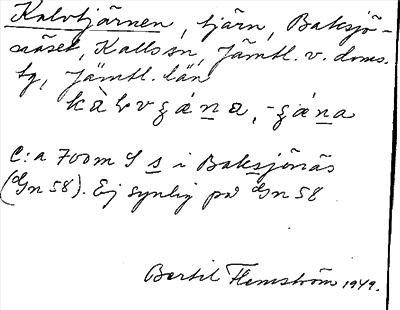 Kalvtjärnen, tjärn, Baksjö-
näset, Kall sn, Jämtl. v. doms.
tg, Jämtl. län
C:a 700 m S s i Baksjönäs
(Gn 58). Ej synlig på Gn 58
Bertil Flemström 1949.